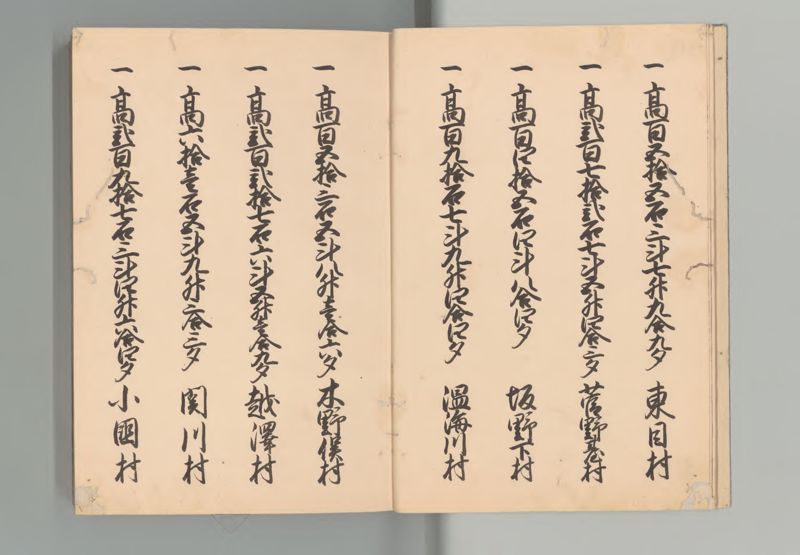 一 高百五拾五石三斗七升九合九夕 東目村
一 高弐百七拾弐石七斗五升四合三夕 菅野代村
一 高百四拾五石四斗八合四夕 坂野下村
一 高百九拾石七斗九升四合四夕 温海川村
一 高百五拾三石五斗八升壱合六夕 木野俣村
一 高弐百弐拾七石六斗五升壱合九夕 越澤村
一 高六拾壱石五斗九升三合三夕 関川村
一 高弐百九拾七石三斗四升六合四夕 小國村